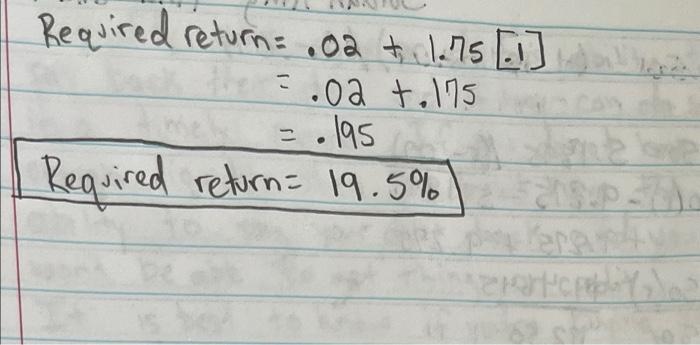 Required return= .02 + 1.75 [.1]
= .02 +.175
= .195
Required return= 19.5%